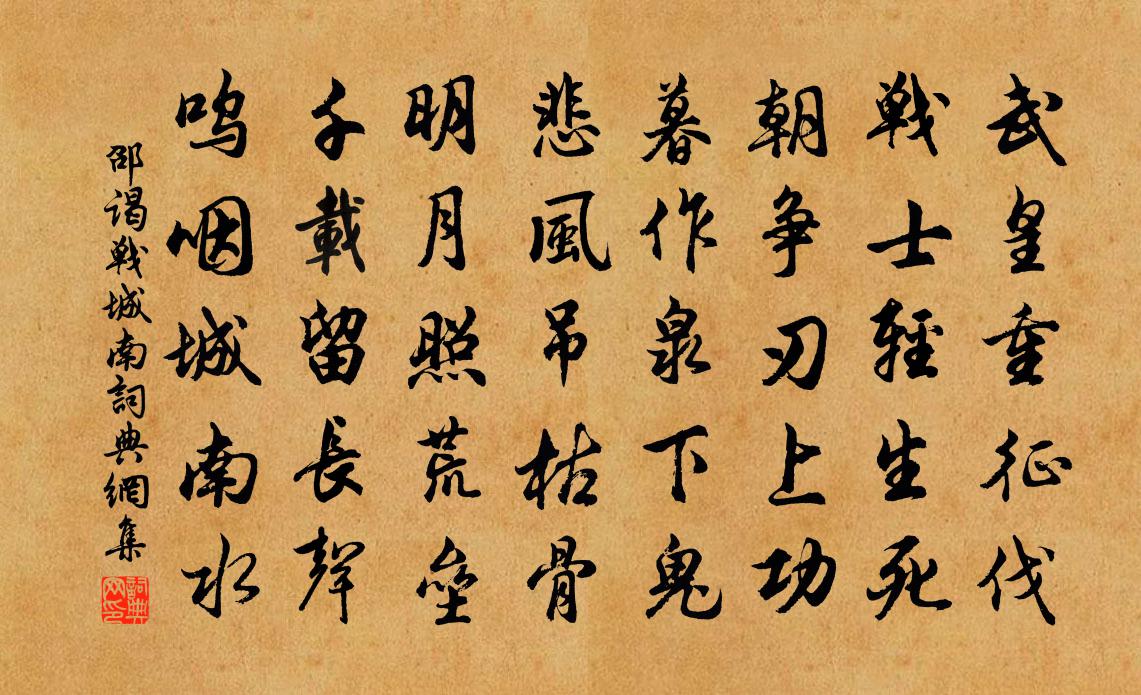 武皇重征伐
戦士輕生死
朝争刃上功
暮作泉下鬼
悲風吊枯骨
明月照荒壘
千載留長聲
鸣咽城南水
邵謁戦城南詞典網集
詞典网印